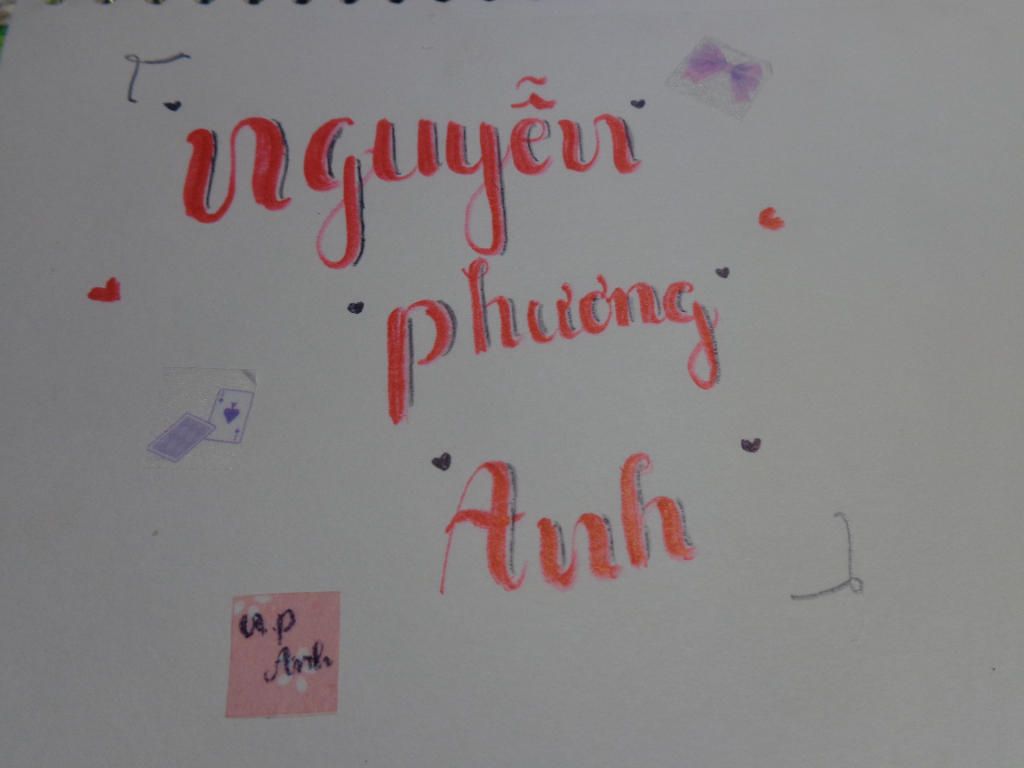 Nguyễn
phương
Anh
N.P
Anh